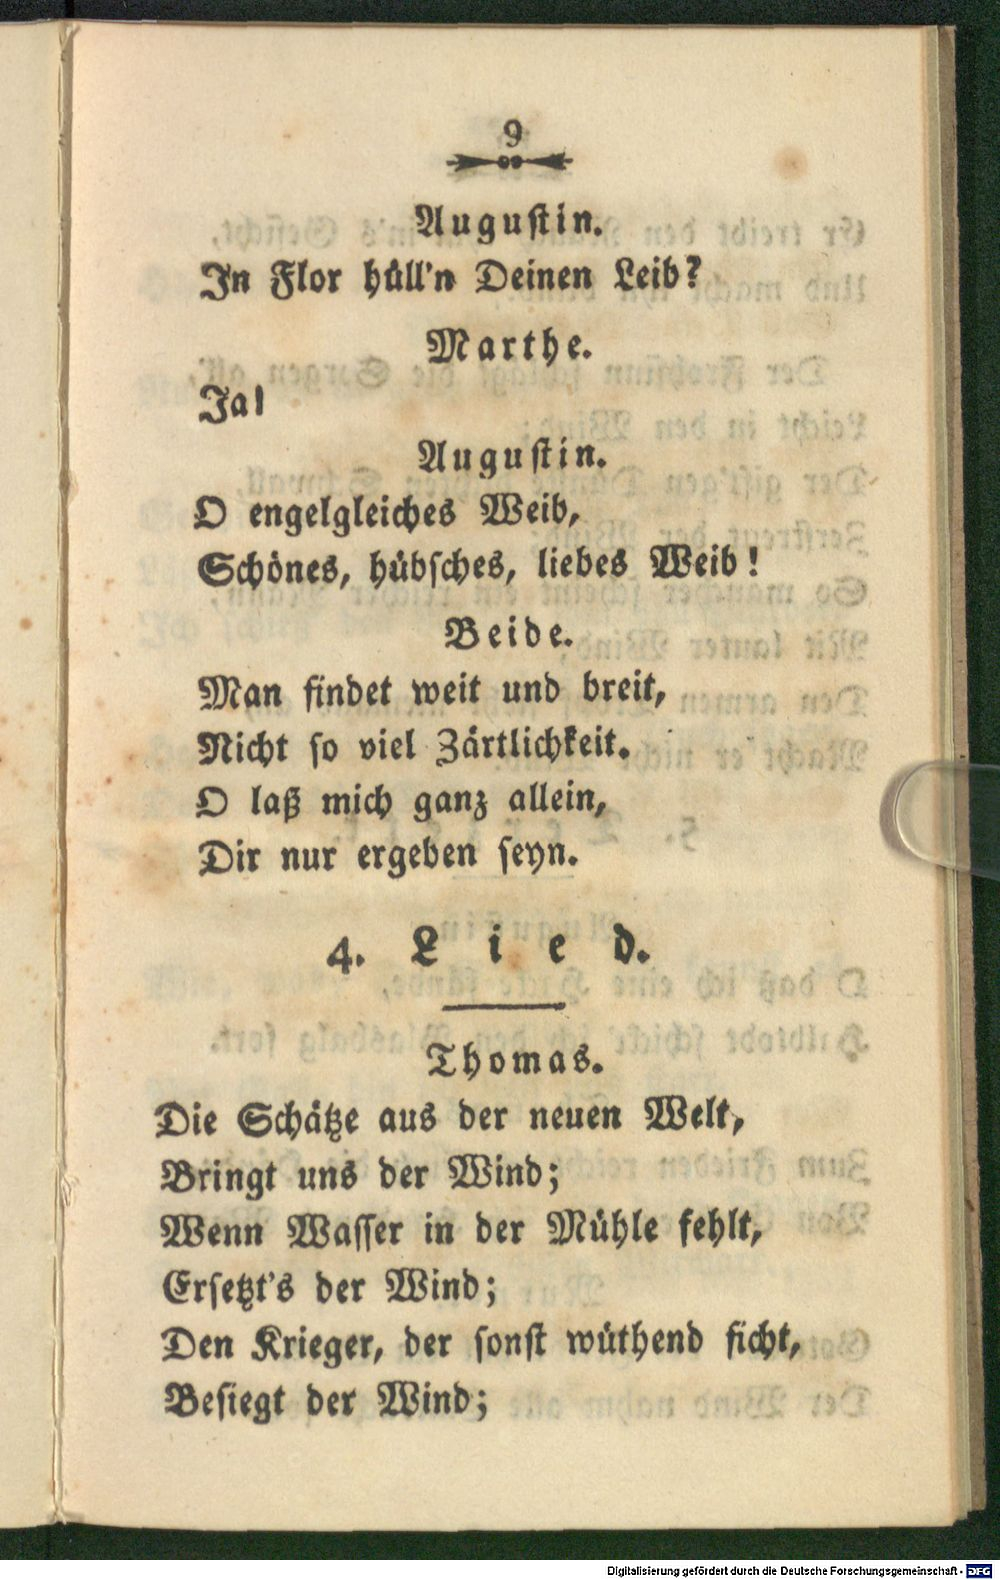 9
Augustin.
In Flor hüll'n Deinen Leib?
Marthe.
Ja!
Augustin.
O engelgleiches Weib,
Schönes, hübsches, liebes Weib!
Beide.
Man findet weit und breit,
Nicht so viel Zärtlichkeit.
O laß mich ganz allein,
Dir nur ergeben seyn.
4. Lied.
Thomas.
Die Schätze aus der neuen Welt,
Bringt uns der Wind;
Wenn Wasser in der Mühle fehlt,
Ersetzt's der Wind;
Den Krieger, der sonst wüthend ficht,
Besiegt der Wind;
Digitalisierung gefördert durch die Deutsche Forschungsgemeinschaft - DFG